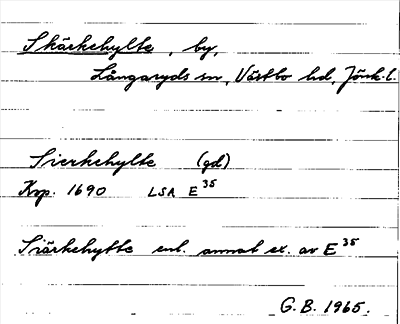 Skärkehylte, by,
Långaryds sn, Västbo hd, Jönk. l.
Sierkehylte (gd)
Kop. 1690 LSA E 35
Siärkehylte enl. annat ex. av E 35
G. B. 1965.